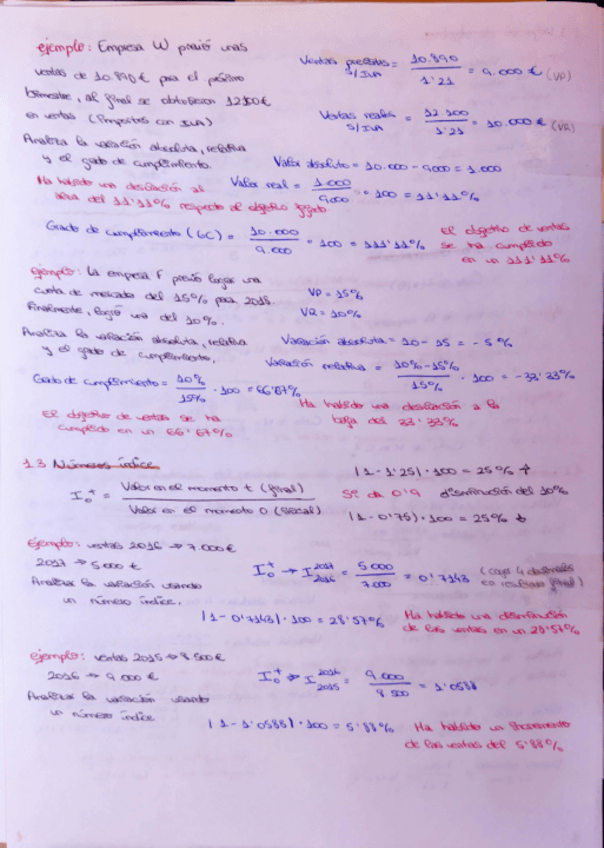 ejemplo: Empresa W previó unas
ventas de 10.890€ para el próximo
bimestre, al final se obtuvieron 12100€
en ventas (Propuestos con IVA)
Ventas previstas S/IVA = 10.890 / 1'21 = 9.000 € (VP)
Ventas reales S/IVA = 12.100 / 1'21 = 10.000 € (VR)
Analiza la variación absoluta, relativa
y el grado de cumplimiento.
Valor absoluto = 10.000 - 9000 = 1.000
Valor real = 1.000 / 9000 · 100 = 11'11%
Ha habido una desviación al
alza del 11'11% respecto al objetivo fijado
Grado de cumplimiento (GC) = 10.000 / 9.000 · 100 = 111'11%
El objetivo de ventas
se ha cumplido
en un 111'11%
ejemplo: La empresa F previó lograr una
cuota de mercado del 15% para 2018.
Finalmente, logró una del 10%.
VP = 15%
VR = 10%
Analiza la variación absoluta, relativa
y el grado de cumplimiento.
Variación absoluta = 10 - 15 = -5%
Variación relativa = 10% - 15% / 15% · 100 = -33'33%
Grado de cumplimiento = 10% / 15% · 100 = 66'67%
Ha habido una desviación a la
baja del 33'33%
El objetivo de ventas se ha
cumplido en un 66'67%
1.3 Números índice
I₀ᵗ = Valor en el momento t (final) / Valor en el momento 0 (inicial)
|1 - 1'25| · 100 = 25% ↑
Si da 0'9 disminución del 10%
|1 - 0'75| · 100 = 25% ↓
Ejemplo: ventas 2016 → 7.000€
2017 → 5.000 €
Analiza la variación usando
un número índice.
I₀ᵗ → I ²⁰¹⁷₂₀₁₆ = 5.000 / 7.000 = 0'7143 (coge 4 decimales en resultado final)
|1 - 0'7143| · 100 = 28'57%
Ha habido una disminución
de las ventas en un 28'57%
ejemplo: ventas 2015 → 8.500€
2016 → 9.000 €
Analizar la variación usando
un número índice
I₀ᵗ → I ²⁰¹⁶₂₀₁₅ = 9.000 / 8.500 = 1'0588
|1 - 1'0588| · 100 = 5'88%
Ha habido un incremento
de las ventas del 5'88%